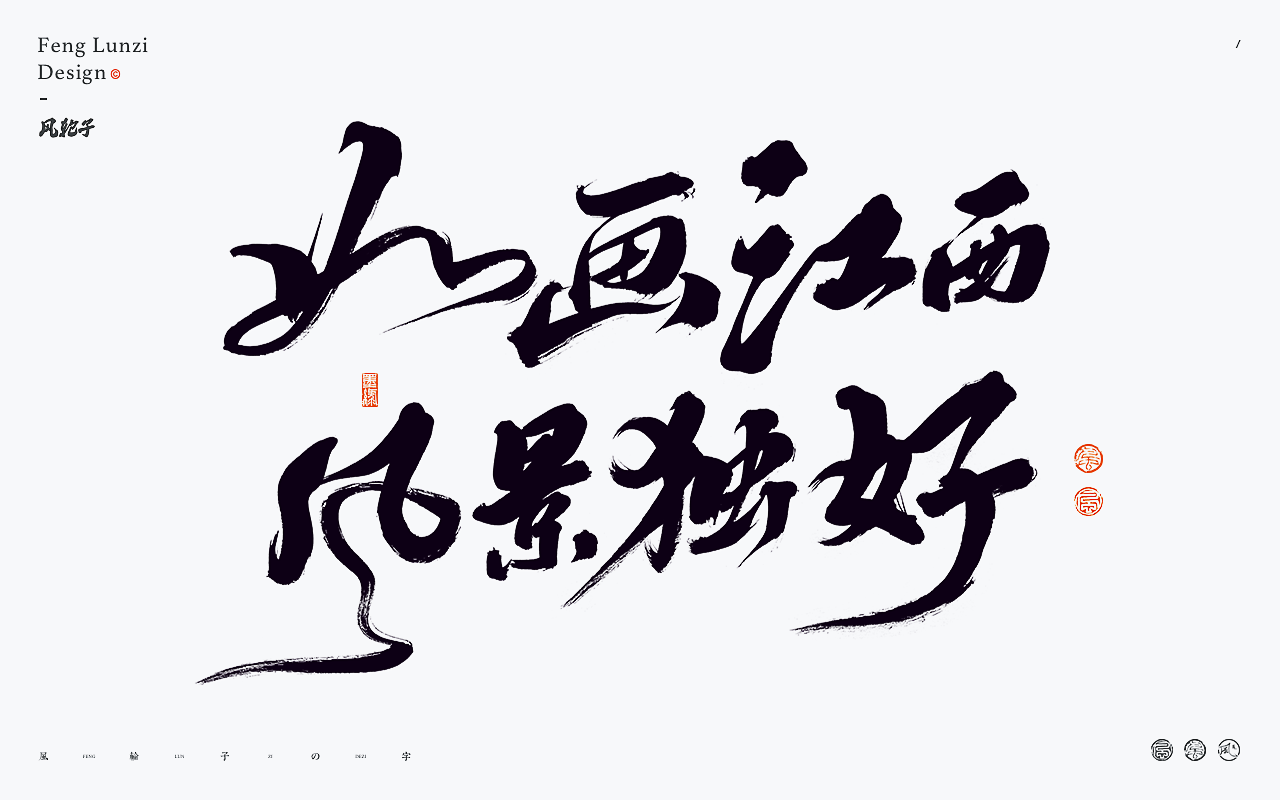 Feng Lunzi
Design©
-
风轮子
/
如画江西
风景独好
風 FENG 輪 LUN 子 ZI の DEZI 字